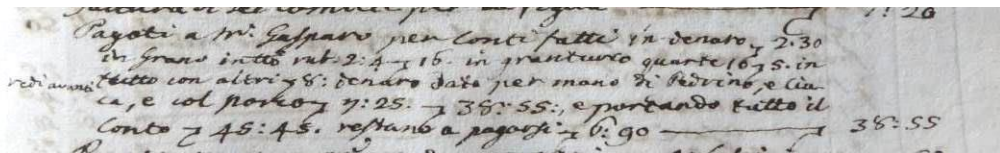 7: 20
Pagati a Mr. Gasparo per conti fatti in denaro 2:30
in grano in tto rub: 2:4 16. in granturco quarte 16 5. in
redi avanti tutto con altri 8: denaro dato per mano di Pedrino, e Ciu-
ca, e col porco 7: 25. 38: 55:, e portando tutto il
Conto 45: 45. restano a pagarsi 6: 90 38: 55